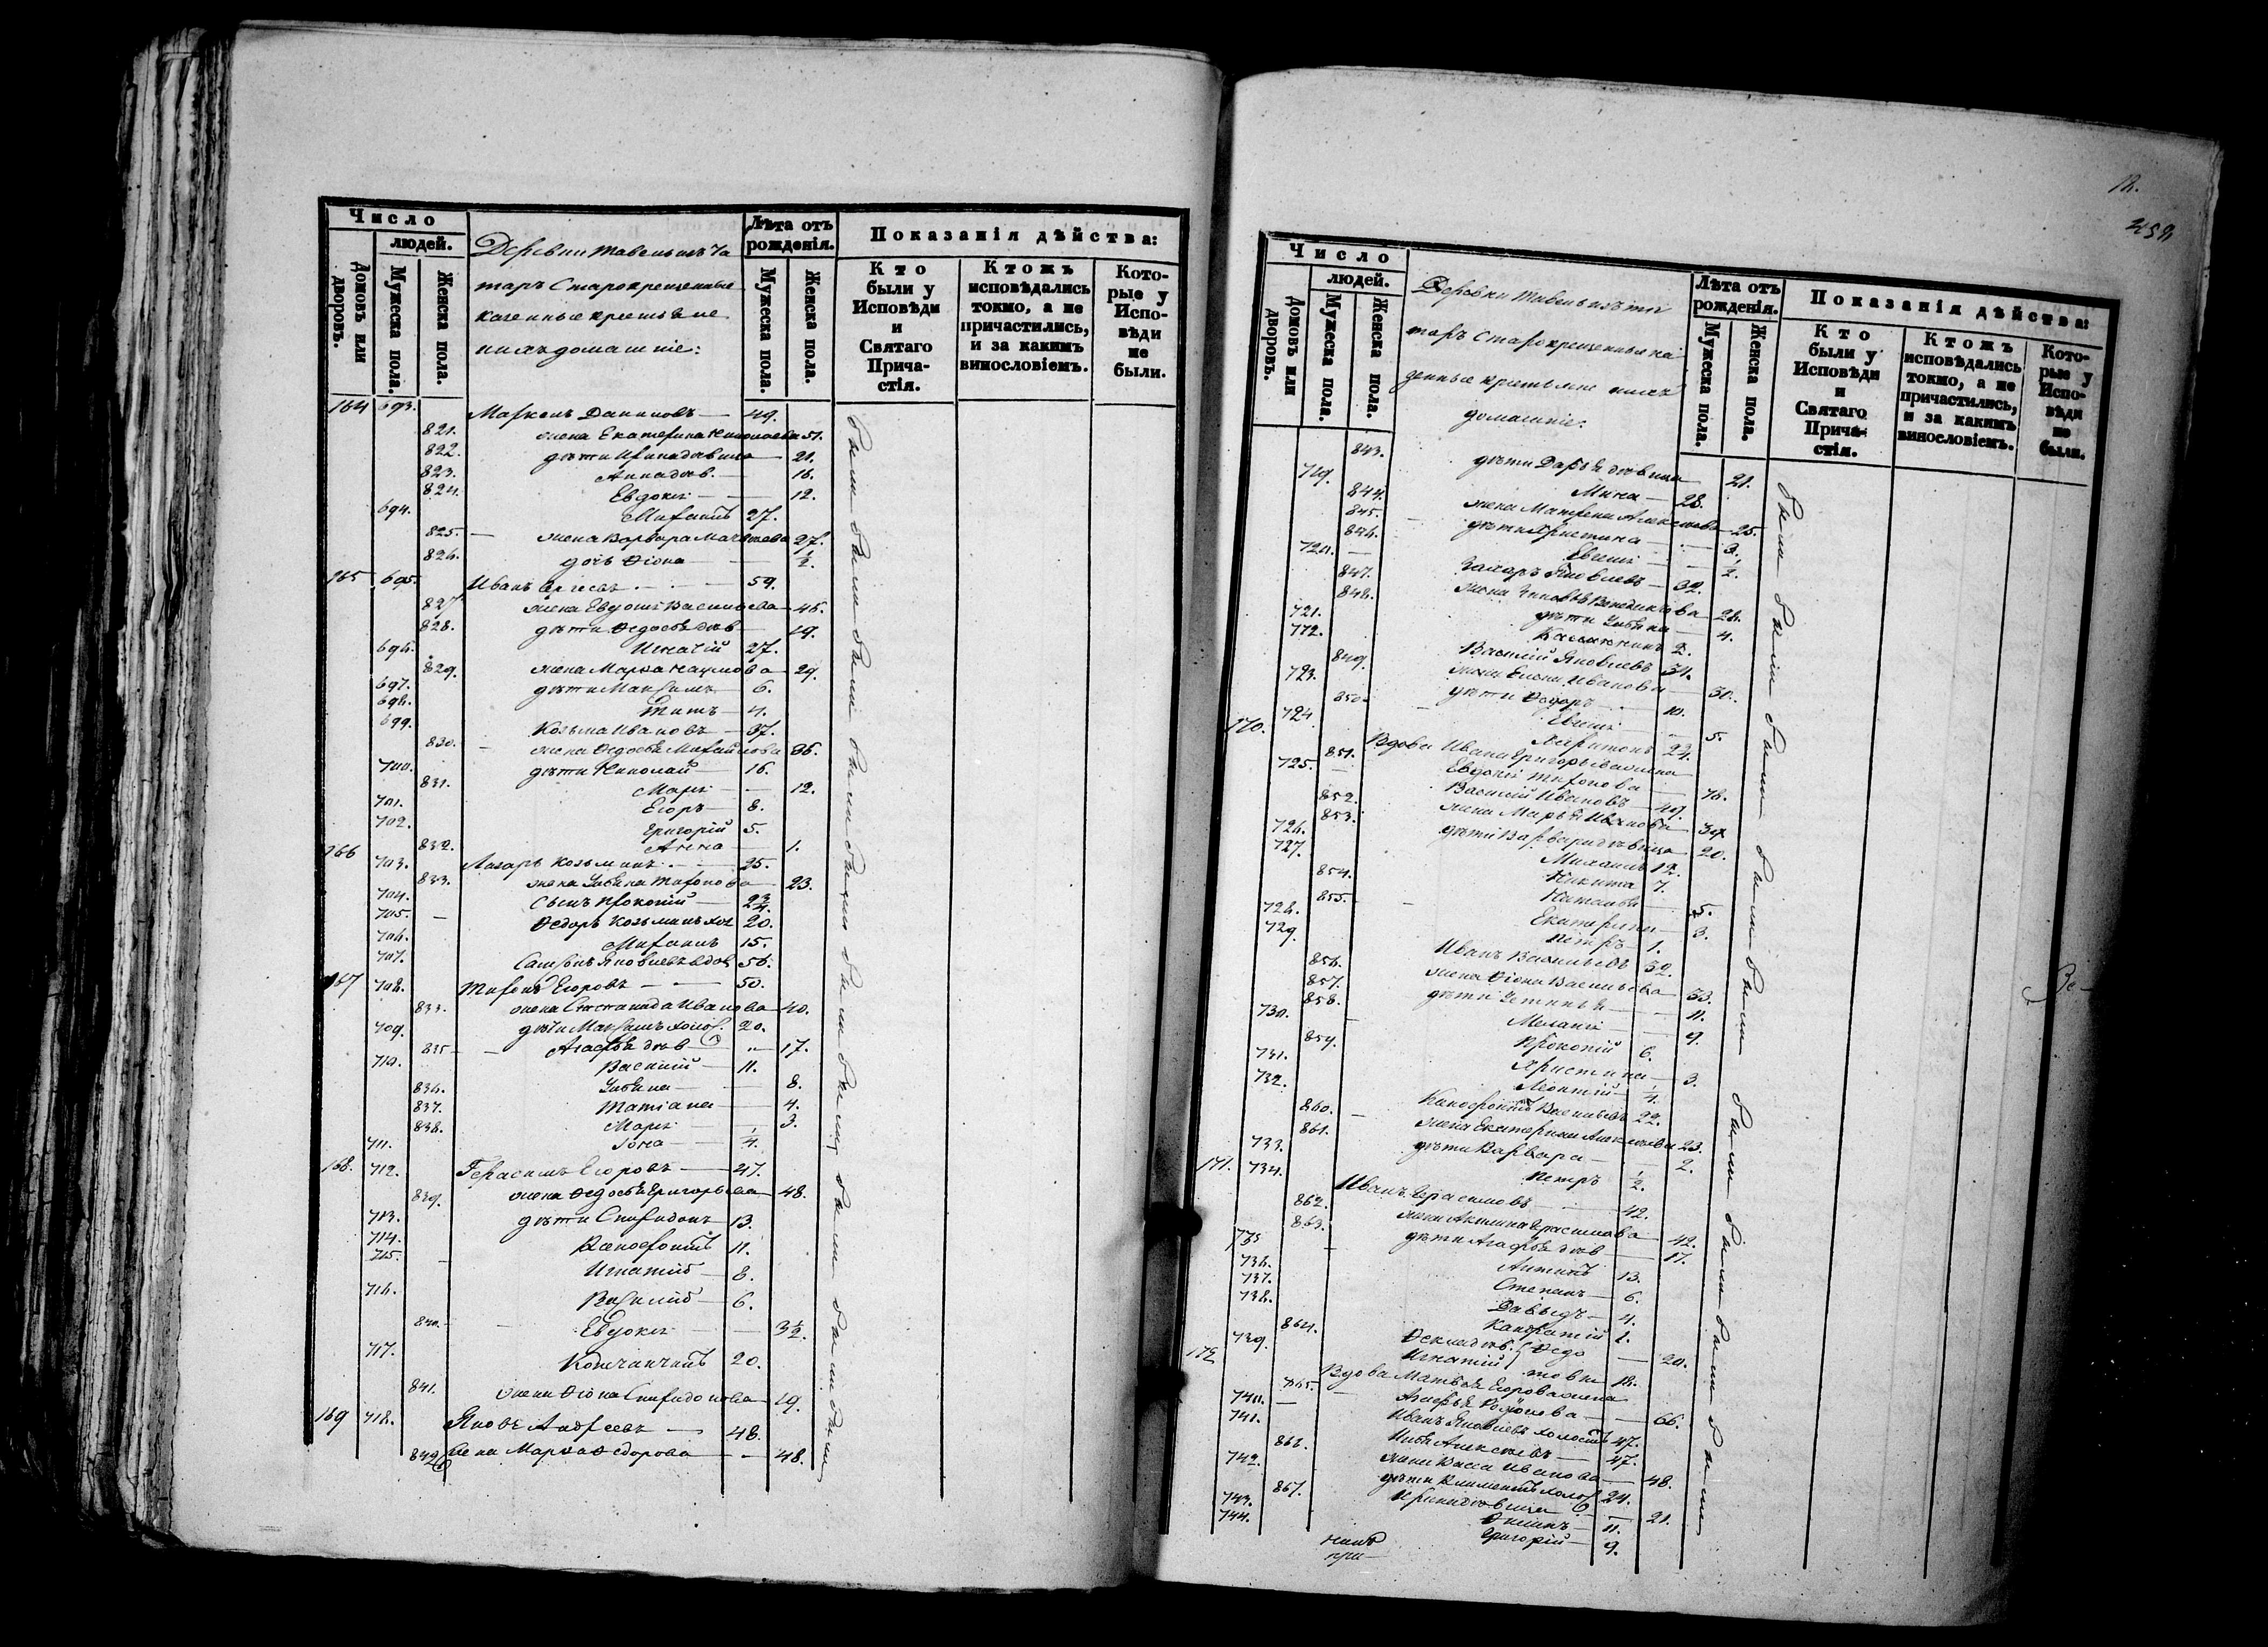 Число
людей.
Домовъ или дворовъ.
Мужеска пола.
Женска пола.
Деревни Тавельмъ та
таръ Старокрещенные
казенные крестьяне
и ихъ домашніе:
Лѣта отъ рожденія.
Мужеска пола.
Женска пола.
Показанія дѣйства:
Кто были у Исповѣди и Святаго Причастія.
Ктожъ исповѣдались токмо, а не причастились, и за какимъ винословіемъ.
Которые у Исповѣди не были.
164 693. Маркелъ Даниловъ — 49.
821. жена Екатерина Николаева 51.
822. дѣти Ирина дѣвица — 21.
823. Анна дѣв. — 16.
824. Евдокія — 12.
694. 27.
825. — жена Варвара 27.
826. дочь Ѳіона — 1/2.
165 695. Иванъ Сергеевъ — 59.
827. жена Евдокія Васильева — 46.
828. дѣти Ѳедосья дѣв — 19.
696. Игнатій 27.
829. жена Марѳа Наумова — 29.
697. дѣти Максимъ — 6.
698. Титъ — 4.
699. Козьма Ивановъ — 37.
830. жена Ѳедосья Михайлова 36.
700. дѣти Николай — 16.
831. Марія — 12.
701. Егоръ — 8.
702. Григорій 5.
832. Анна — 1.
166 703. Лазарь Козьминъ — 25.
833. жена Улита Тихонова — 23.
704. Сынъ Прокопій — 2 3/4.
705. — Ѳедоръ Козьминъ хол 20.
706. 15.
707. Самсонъ Яковлевъ вдов 56.
167 708. Тихонъ Егоровъ — 50.
833. жена Степанида Иванова — 40.
709. дѣти Максимъ холос. 20.
835 — Агафья дѣв — 17.
710. Василій — 11.
836. Ульяна — 8.
837. Татіана — 4.
838. Марія — 3.
711. Іона — 1/4.
168. 712. Герасимъ Егоровъ — 47.
839. жена Ѳедосья Григорьева 48.
713. дѣти Спиридонъ 13.
714. Ксенофонтъ 11.
715. Игнатій — 8.
716. Василій — 6.
840. — Евдокія — 3 1/2.
717. 20.
841. жена Ѳіона Спиридонова — 19.
169 718. Яковъ Андреевъ — 48.
842. жена Марѳа Ѳедорова — 48.
были были были были были были были были были были были были
12.
459
Число
людей.
Домовъ или дворовъ.
Мужеска пола.
Женска пола.
Деревни Тавельмъ та
таръ Старокрещенные ка
зенные крестьяне и ихъ
домашніе:
Лѣта отъ рожденія.
Мужеска пола.
Женска пола.
Показанія дѣйства:
Кто были у Исповѣди и Святаго Причастія.
Ктожъ исповѣдались токмо, а не причастились, и за какимъ винословіемъ.
Которые у Исповѣди не были.
843. дѣти Дарья дѣвица 21.
719. Мина — 28.
844. жена Матрена Алексеева 25.
845. дѣти Христина — 3.
846. Евгенія — 1/2.
720. Захаръ Яковлевъ — 32.
847. жена Зиновья 28.
848. дѣти Ульяна — 4.
721. 2.
772. Василій Яковлевъ 34.
849. жена Елена Иванова — 30.
723. дѣти Ѳедоръ — 10.
850. Евгенія — 5.
724 Харитонъ 2 3/4.
170. Вдова Ивана Григорьева жена
851. Евдокія Тихонова — 78.
725. Василій Ивановъ 49.
852. жена Марья Иванова 39
853. дѣти Варвара дѣвица 20.
726. Михаилъ 12.
727. Никита 7.
854. Наталья — 5.
855. Екатерина 3.
728. Петръ 1.
729. Иванъ Васильевъ 32.
856. жена Ѳіона Васильева 33.
857. дѣти Устинья — 11.
858. Меланія — 9.
730. Прокопій 6.
859. Христина — 3.
731. Леонтій 1/4.
732. Ксенофонтъ Васильевъ 22.
860. жена Екатерина Алексеева 23.
861. дѣти Варвара — 2.
733. Петръ 1/2.
171. 734. Иванъ Герасимовъ — 42.
862. жена Акилина Герасимова 42.
863. дѣти Агафья дѣв — 17.
735 Антипъ 13.
736. Степанъ — 6.
737. Давыдъ — 4.
738. Кондратій 1.
864. Ѳекла дѣв. Ѳедо — 20.
739. Игнатій товы 18.
172 Вдова Матвея Егорова жена
865. Агафья — 66.
740. Иванъ Яковлевъ холостъ 47.
741. Илья Алексеевъ — 47.
866. жена Васса Иванова — 48.
742. дѣти Климентъ холос 24.
867. Ирина дѣвица — 21.
743. 11.
744. Григорій 9.
были были были были были были были были были были были были